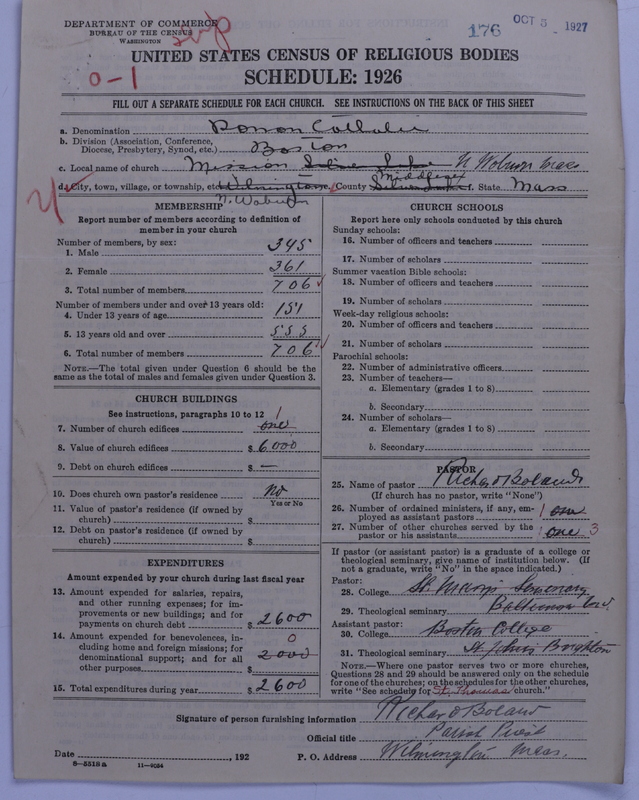 DEPARTMENT OF COMMERCE
BUREAU OF THE CENSUS
WASHINGTON
176
OCT 5 1927
0-1
UNITED STATES CENSUS OF RELIGIOUS BODIES
SCHEDULE: 1926
FILL OUT A SEPARATE SCHEDULE FOR EACH CHURCH. SEE INSTRUCTIONS ON THE BACK OF THIS SHEET
a. Denomination Roman Catholic
b. Division (Association, Conference, Diocese, Presbytery, Synod, etc.) Boston
c. Local name of church Mission Silver Lake N Woburn Mass
d. City, town, village, or township, etc. Wilmington N. Woburn County Silver Lake Middlesex State Mass
MEMBERSHIP
Report number of members according to definition of member in your church
Number of members, by sex:
1. Male 345
2. Female 361
3. Total number of members 706
Number of members under and over 13 years old:
4. Under 13 years of age 151
5. 13 years old and over 555
6. Total number of members 706
NOTE.—The total given under Question 6 should be the same as the total of males and females given under Question 3.
CHURCH BUILDINGS
See instructions, paragraphs 10 to 12
7. Number of church edifices one 1
8. Value of church edifices $ 6000
9. Debt on church edifices $ —
10. Does church own pastor's residence No
Yes or No
11. Value of pastor's residence (if owned by church) $
12. Debt on pastor's residence (if owned by church) $
EXPENDITURES
Amount expended by church during last fiscal year
13. Amount expended for salaries, repairs, and other running expenses; for improvements or new buildings; and for payments on church debt $ 2600
14. Amount expended for benevolences, including home and foreign missions; for denominational support; and for all other purposes $ 2000 0
15. Total expenditures during year $ 2600
CHURCH SCHOOLS
Report here only schools conducted by this church
Sunday schools:
16. Number of officers and teachers
17. Number of scholars
Summer vacation Bible schools:
18. Number of officers and teachers
19. Number of scholars
Week-day religious schools:
20. Number of officers and teachers
21. Number of scholars
Parochial schools:
22. Number of administrative officers
23. Number of teachers—
a. Elementary (grades 1 to 8)
b. Secondary
24. Number of scholars—
a. Elementary (grades 1 to 8)
b. Secondary
PASTOR
25. Name of pastor Richard Boland
(If church has no pastor, write "None")
26. Number of ordained ministers, if any, employed as assistant pastors 1 one
27. Number of other churches served by the pastor or his assistants one 3
If pastor (or assistant pastor) is a graduate of a college or theological seminary, give name of institution below. (If not a graduate, write "No" in the space indicated.)
Pastor:
28. College St. Marys Seminary
29. Theological seminary Baltimore Md.
Assistant pastor:
30. College Boston College
31. Theological seminary St Johns Brighton
NOTE.—Where one pastor serves two or more churches, Questions 28 and 29 should be answered only on the schedule for one of the churches; on the schedules for the other churches, write "See schedule for St. Thomas church."
Signature of person furnishing information Richard Boland
Official title Parish Priest
Date , 192 P. O. Address Wilmington Mass.
8-5518a 11-9034